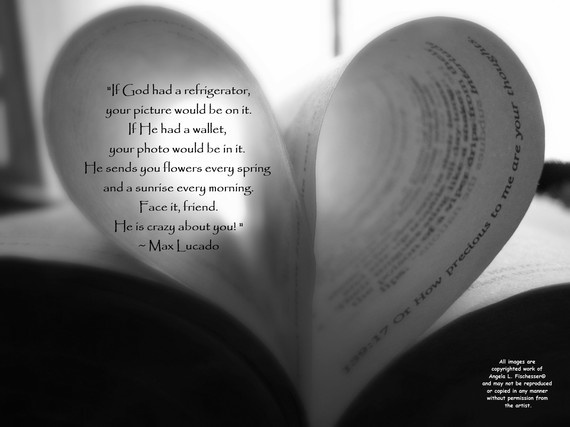 "If God had a refrigerator,
your picture would be on it.
If He had a wallet,
your photo would be in it.
He sends you flowers every spring
and a sunrise every morning.
Face it, friend.
He is crazy about you! "
~ Max Lucado
139:17 Or How precious to me are your thoughts,
All images are
copyrighted work of
Angela L. Fischesser©
and may not be reproduced
or copied in any manner
without permission from
the artist.